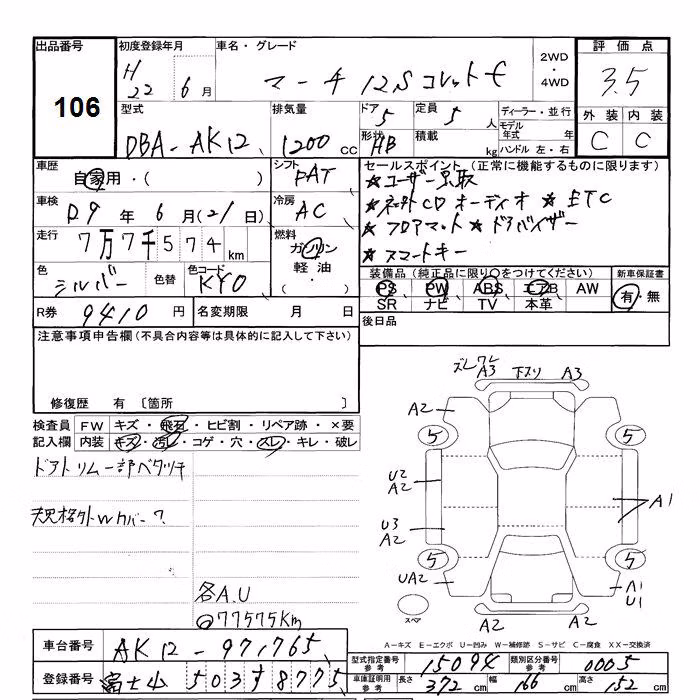 出品番号 初度登録年月 車名・グレード 2WD・4WD 評価点
106 H22 6月 マーチ 12S コレットF 3.5
型式 排気量 ドア 定員 ディーラー・並行 外装 内装
DBA-AK12 1200cc 5 5人 モデル年式 年 C C
形状 積載 ハンドル 左・右
HB kg
車歴 自家用・( ) シフト FAT
車検 D9年6月(21日) 冷房 AC
走行 7万7千574km 燃料 ガソリン 軽油・
色 シルバー 色替 色コード KY0
R券 9410円 名変期限 月 日
セールスポイント(正常に機能するものに限ります)
★ユーザー買取
★ネット外CDオーディオ ★ETC
★フロアマット★ドアバイザー
★スマートキー
装備品(純正品に限り○をつけてください) 新車保証書
PS PW ABS エアB AW 有・無
SR ナビ TV 本革
後日品
注意事項申告欄(不具合内容等は具体的に記入して下さい)
修復歴 有 〔箇所 〕
検査員記入欄 FW キズ・飛石・ヒビ割・リペア跡・×要
内装 キズ・汚れ・コゲ・穴・スレ・キレ・破レ
ドアトリム一部ベタツキ
規格外Wカバー?
各A.U
77575Km
ズレワレ A3 下スリ A3
A2
5 5
U2 A2
A1
U3 A2
5 5
UA2 A1 U1
スペア A2 A2
A-キズ E-エクボ U-凹み W-補修跡 S-サビ C-腐食 XX-交換済
車台番号 AK12-971765
登録番号 富士山 503す8775
型式指定番号 参考 15094 類別区分番号 参考 0005
車庫証明用 参考 長さ 372cm 幅 166cm 高さ 152cm